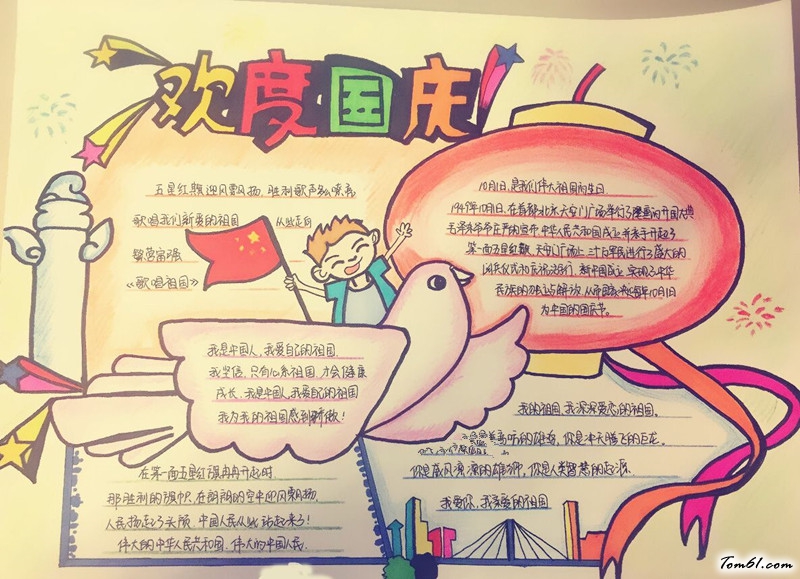 欢度国庆
五星红旗迎风飘扬，胜利歌声多么嘹亮
歌唱我们亲爱的祖国 从此走向
繁荣富强
《歌唱祖国》
10月1日,是我们伟大祖国的生日
1949年10月1日,在首都北京天安门广场举行了隆重的开国大典
毛泽东
中华人民共和国成立并亲手升起了
第一面五星红旗,天安门广场上三十万军民进行了盛大的
阅兵仪式和庆祝游行 新中国成立,实现了中华
民族的独立与解放,从
每年10月1日
为中国的国庆节。
我是中国人,我爱自己的祖国
我坚信,只有心系祖国,才会健康
成长,我是中国人,我爱自己的祖国
我为我的祖国感到骄傲！
我的祖国,我深深爱恋的祖国。
你是
的雄鸡,你是冲天腾飞的巨龙。
你是威风凛凛的雄狮,你是人类智慧的起源
我爱你,我亲爱的祖国
在第一面五星红旗冉冉升起时
那胜利的旗帜,在朗朗的空中迎风飘扬
人民扬起了头颅,中国人民从此站起来了！
伟大的中华人民共和国,伟大的中国人民.
Tom61.com